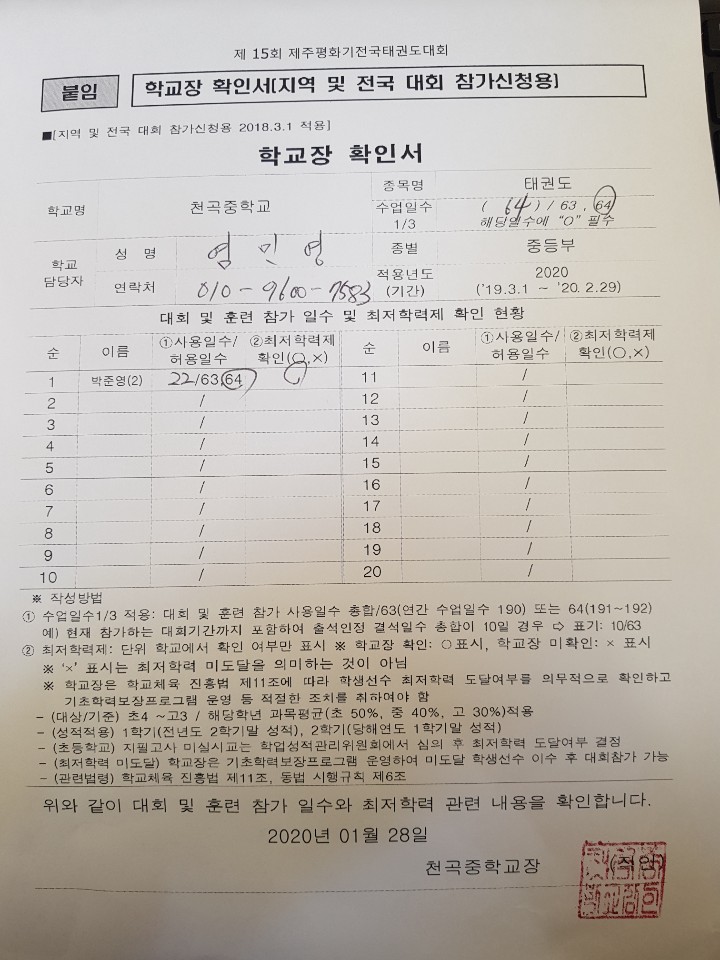 제 15회 제주평화기전국태권도대회
붙임 학교장 확인서[지역 및 전국 대회 참가신청용]
■[지역 및 전국 대회 참가신청용 2018.3.1 적용]
학교장 확인서
학교명 천곡중학교 종목명 태권도
수업일수 1/3 ( 64 ) / 63 , 64
해당일수에 "O" 필수
학교 담당자 성 명 염 민 영 종별 중등부
연락처 010-9600-7583 적용년도 (기간) 2020
('19.3.1 ~ '20.2.29)
대회 및 훈련 참가 일수 및 최저학력제 확인 현황
순 이름 ①사용일수/허용일수 ②최저학력제 확인(○,×) 순 이름 ①사용일수/허용일수 ②최저학력제 확인(○,×)
1 박준영(2) 22/63,64 ○ 11 /
2 / 12 /
3 / 13 /
4 / 14 /
5 / 15 /
6 / 16 /
7 / 17 /
8 / 18 /
9 / 19 /
10 / 20 /
※ 작성방법
① 수업일수1/3 적용: 대회 및 훈련 참가 사용일수 총합/63(연간 수업일수 190) 또는 64(191~192)
예) 현재 참가하는 대회기간까지 포함하여 출석인정 결석일수 총합이 10일 경우 ⇨ 표기: 10/63
② 최저학력제: 단위 학교에서 확인 여부만 표시 ※ 학교장 확인: ○표시, 학교장 미확인: × 표시
※ '×' 표시는 최저학력 미도달을 의미하는 것이 아님
※ 학교장은 학교체육 진흥법 제11조에 따라 학생선수 최저학력 도달여부를 의무적으로 확인하고
기초학력보장프로그램 운영 등 적절한 조치를 취하며야 함
- (대상/기준) 초4 ~고3 / 해당학년 과목평균(초 50%, 중 40%, 고 30%)적용
- (성적적용) 1학기(전년도 2학기말 성적), 2학기(당해연도 1학기말 성적)
- (초등학교) 지필고사 미실시교는 학업성적관리위원회에서 심의 후 최저학력 도달여부 결정
- (최저학력 미도달) 학교장은 기초학력보장프로그램 운영하여 미도달 학생선수 이수 후 대회참가 가능
- (관련법령) 학교체육 진흥법 제11조, 동법 시행규칙 제6조
위와 같이 대회 및 훈련 참가 일수와 최저학력 관련 내용을 확인합니다.
2020년 01월 28일
천곡중학교장 (직인)